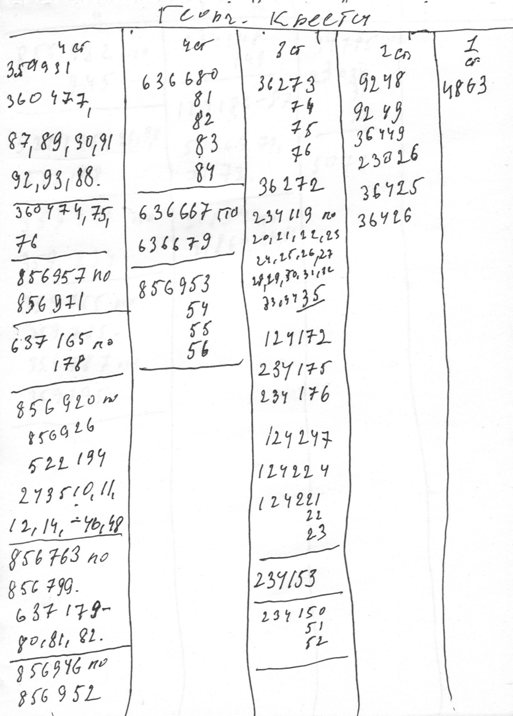 Георг. Кресты
4 ст
359931
360477,
87,89,90,91
92,93,88.
360474,75,
76
856957 по
856971
637165 по
178
856920 по
856926
522194
273510,11,
12,14,÷46,48
856763 по
856799.
637179-
80,81,82.
856946 по
856952
4 ст
636680
81
82
83
84
636667 по
636679
856953
54
55
56
3 ст
36273
74
75
76
36272
234119 по
20,21,22,23
24,25,26,27
28,29,30,31,32
33,34 35
124172
234175
234176
124247
124224
124221
22
23
234153
234150
51
52
2 ст
9248
9249
36449
23026
36425
36426
1
ст
4863